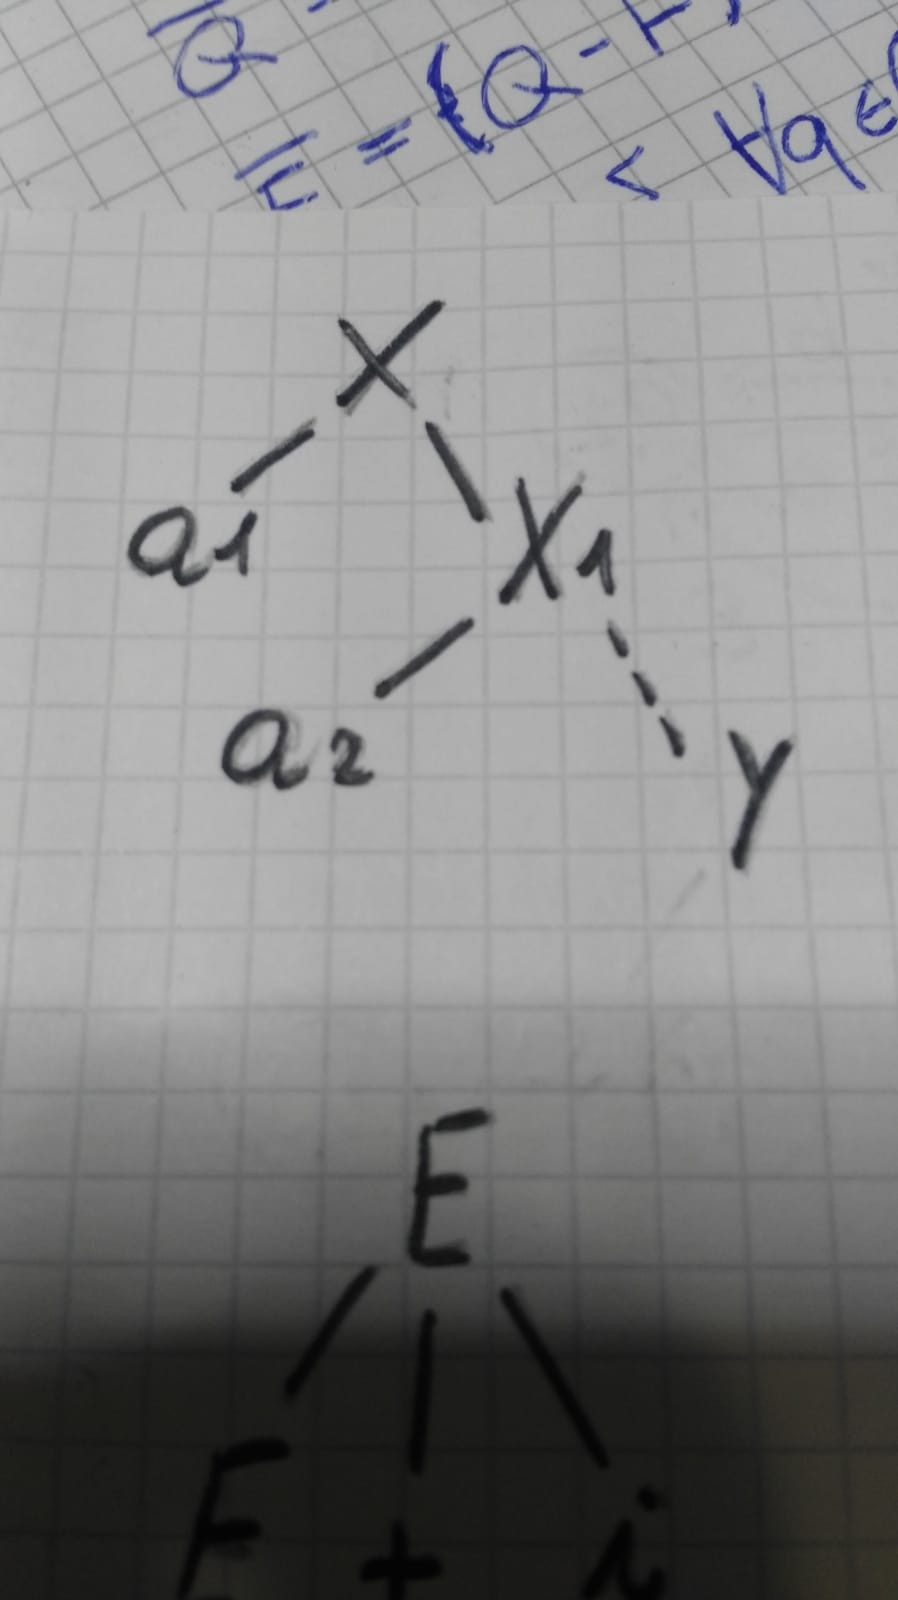 Q
E = (Q -
< ∀q ∈
X
a1 X1
a2 y
E
E + i